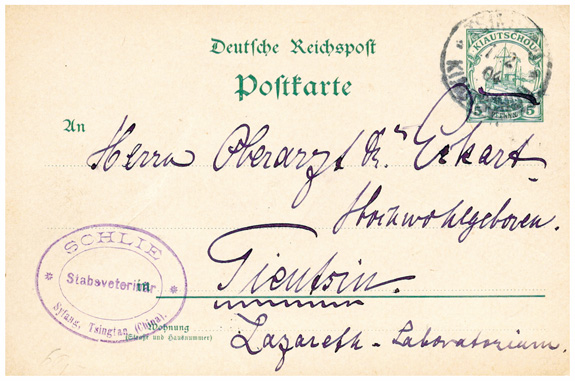 Deutsche Reichspost
KIAUTSCHOU
Postkarte
5
5
PFENNIG
An
Herrn Oberarzt Dr. Eckart
Hochwohlgeboren.
Tientsin.
Lazareth-Laboratorium.
SCHLIE
Stabsveterinär
Syfang, Tsingtau, (China).
Wohnung
(Straße und Hausnummer)